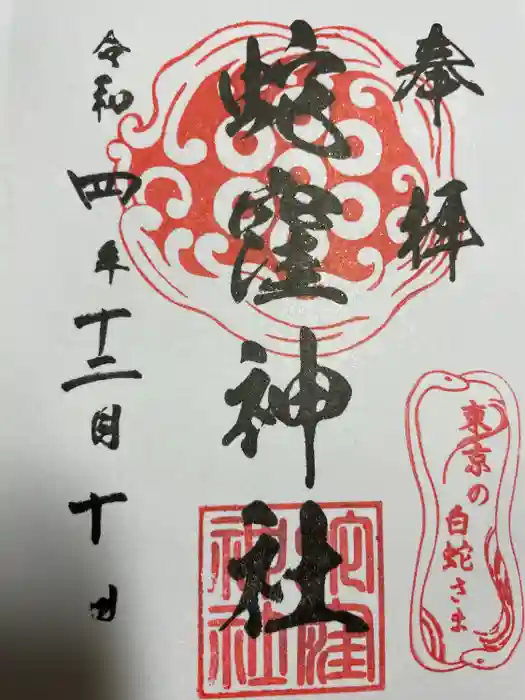 奉拝
蛇窪神社
令和四年十二月十日
東京の白蛇さま
蛇窪神社